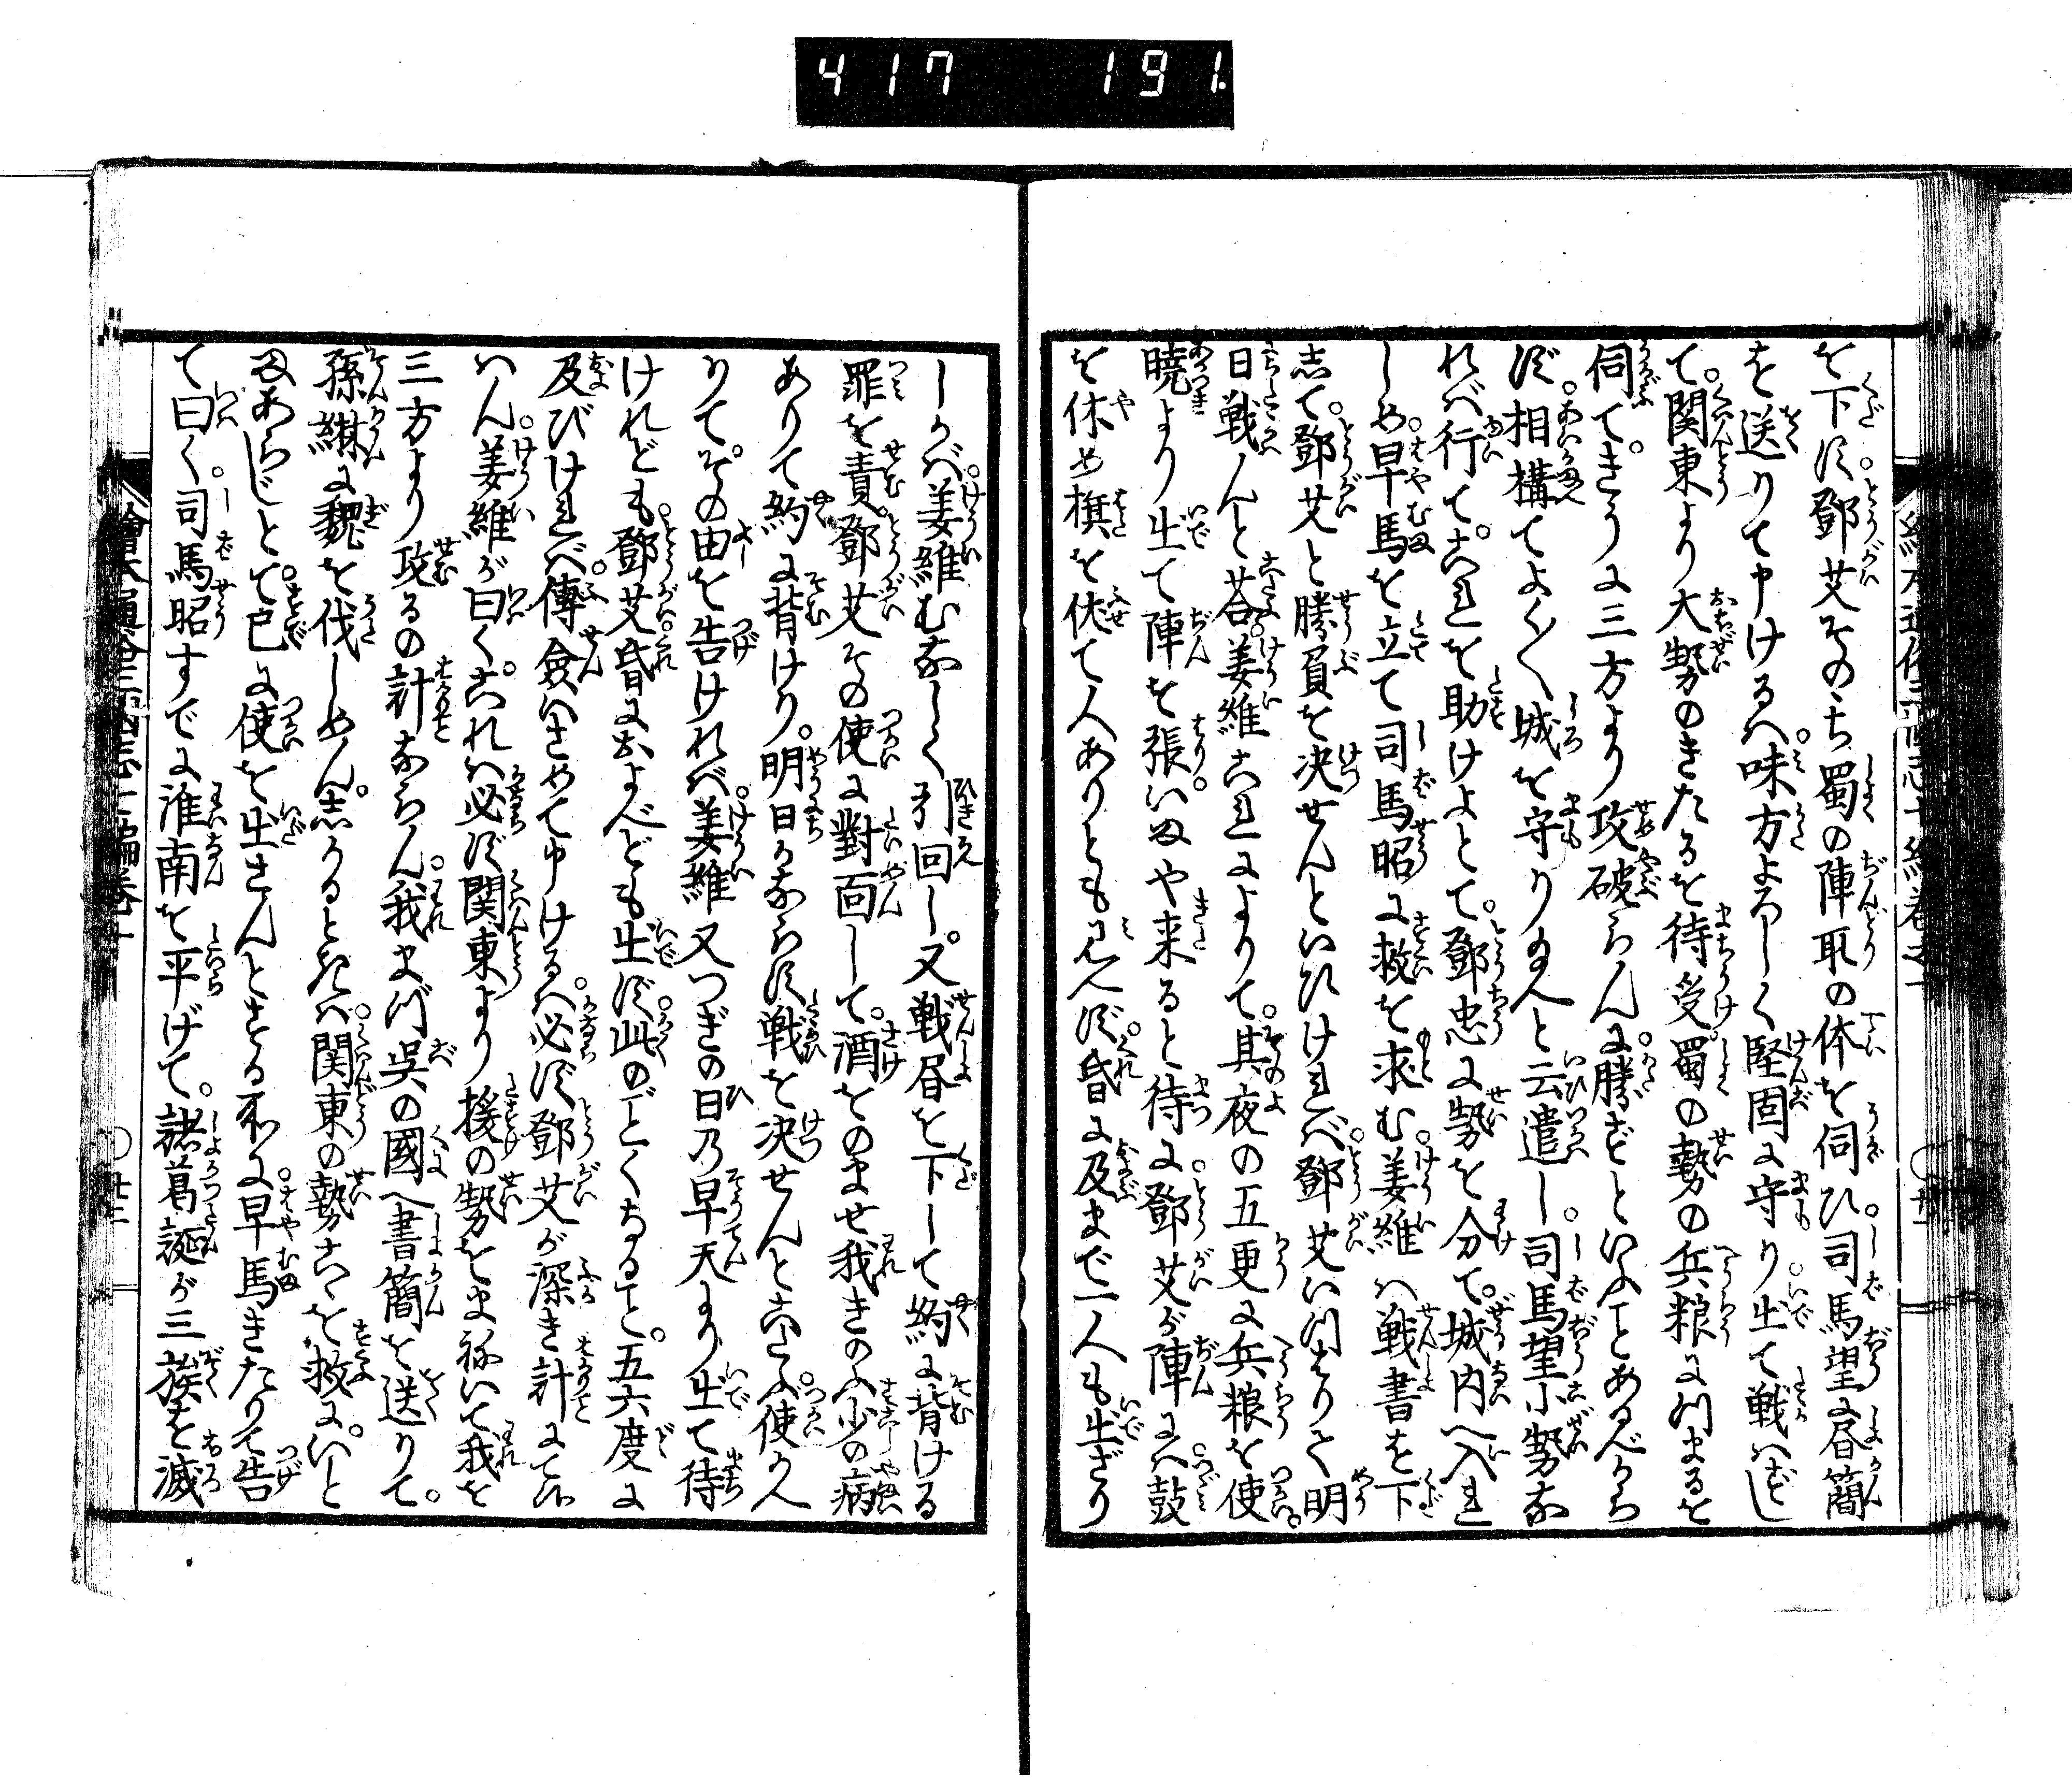 417 191.
を下す。鄧艾そのち蜀の陣取の体を伺ひ。司馬望に書簡
を送りて申けるハ。味方よろしく堅固に守り。出て戦ハざし
て。関東より大勢のきたるを待受。蜀の勢の兵粮につまるを
伺て。きうに三方より攻破らんに。勝ずといふことあるべから
ず。相構てよく〱城を守り給へと云遣し。司馬望小勢な
れバ行て。これを助けよとて。鄧忠に勢を分て。城内へ入れ
しめ。早馬を立て司馬昭に救を求む。姜維ハ戦書を下
して。鄧艾と勝負を决せんといひけれバ。鄧艾いつはりて明
日戦ハんと荅。姜維これによりて。其夜の五更に兵粮を使。
暁より出て陣を張。いまや来ると待に。鄧艾が陣にハ。鼓
を休め旗を伏て人ありとも見へず。昏に及まで一人も出ざり
しかバ。姜維むなしく引回し。又戦書を下して約に背ける
罪を責。鄧艾その使に對面して。酒をのませ我きのふ少の病
ありて約に背けり。明日かならず戦を决せんと荅ふ。使かへ
りて。その由を告けれバ。姜維又つぎの日乃早天より出て待
けれども。鄧艾昏におよべども出ず。此のごとくすること。五六度に
及びけれバ。傅僉いさめて申けるハ。必ず鄧艾が深き計にて候
ハん。姜維が曰く。これハ必ず関東より援の勢をまねいて我を
三方より攻るの計ならん。我まづ呉の國へ書簡を送りて。
孫綝に魏を伐しめん。しかるときハ。関東の勢こゝを救に。いと
まあらじとて。已に使を出さんとする所に。早馬きたりて告
て曰く。司馬昭すでに淮南を平げて。諸葛誕が三族を滅